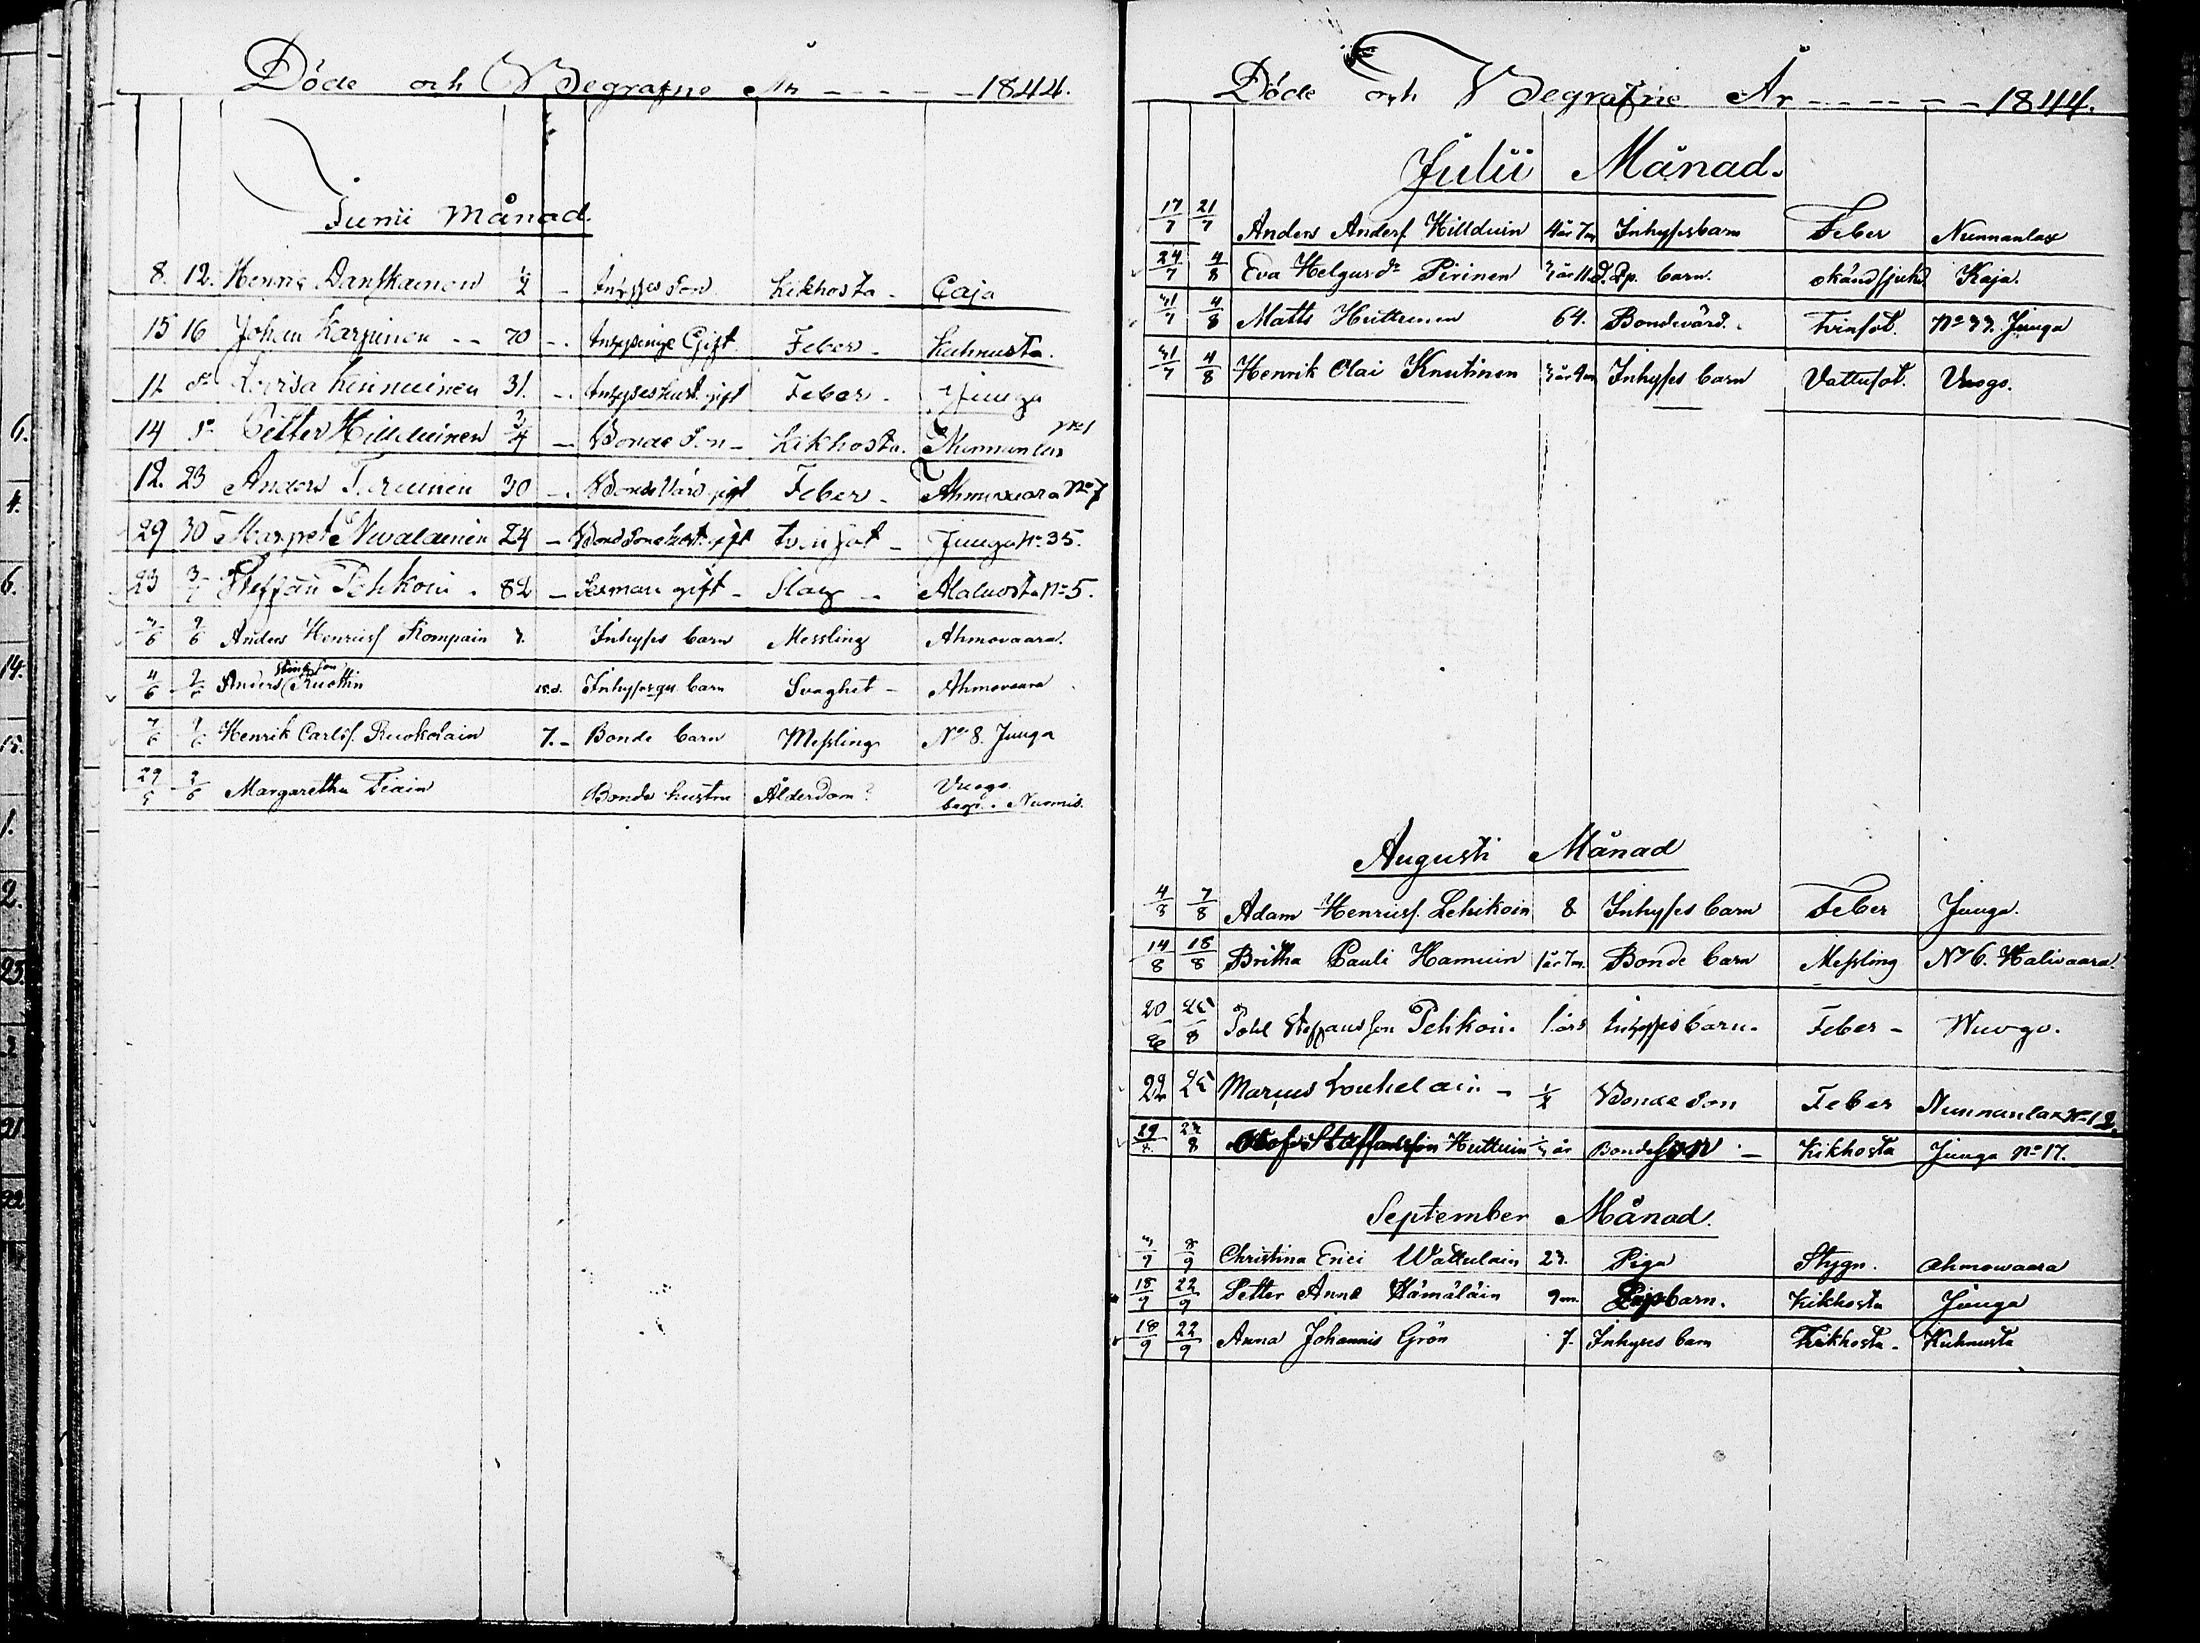 Döde och Begrafne År - - - - - 1844.
Junii Månad.
8. 12. Henric Danskainen 1/2 - Inhyses Son Kikhosta - Caja
15 16 Johan Karppinen - - 70 - Inhysinge Gift Feber - Kuhnusta.
12 do Lovisa 31. - Inhyseshust. gift Feber - Juuga
14 do Petter Hilduinen 3/4 - Bonde Son - Kikhosta. Nunnanlax No 1
12. 23 Anders Turuinen 30 - Bonde Värd gift Feber - Ahmovaara No 7
29 30 Margret Nevalainen 24 - Bond Sons hust. gift Tvinsot - Juuga No 35.
23 3/7 Steffan Pehkoin - 82 - Sexman gift - Slag - Alaluosta No 5.
3/6 9/6 Anders Henricss Kompain 3. Inhyses barn Messling Ahmovaara.
4/6 9/6 Anders Ruottin 15.d. Inhyses barn Svaghet - Ahmovaara
7/6 9/6 Henrik Carlss. Ruokolain 7. - Bonde barn Messling No 8. Juuga
29/5 2/6 Margaretha Tiain Bonde hustru Ålderdom? Vuogo.
begr. Nurmis.
6.
4.
6.
14.
15.
1.
2.
23.
21
22
Döde och Begrafne År - - - - - 1844.
Julii Månad.
17/7 21/7 Anders Anderss Hillduin 4 år 7 m Inhysesbarn Feber Nunnanlax
24/7 4/8 Eva Helgas dr Pirinen Lp. barn. okänd sjukd Kaja.
31/7 4/8 Matts Huttunen 64. Bondevärd. Tvinsot. No 33. Juuga
31/7 4/8 Henrik Olai Knutinen 3 år 9 m Inhyses barn Vattusot. Vuogo.
Augusti Månad
4/8 7/8 Adam Henricss. Lehikoin 8 Inhyses barn Feber Juuga.
14/8 18/8 Britha Pauli Hamuin 1 år 7 m. Bonde barn Messling No 6. Halivaara.
20/8 25/8 Påhl Steffansson Pehkoin. 1 års Inhyses barn. Feber - Wuogo.
22 25 Marcus Louhelain - 1/2 Bonde Son Feber Nunnanlax No 12.
29/8 Olof Staffansson Huttuin år Bondeson - Kikhosta Juuga No 17.
September Månad.
3/9 8/9 Christina Erici Wattulain 23. Piga Stygn. Ahmowaara
18/9 22/9 Petter Anna Hämäläin 9 m. Löpbarn. Kikhosta Juuga
18/9 22/9 Anna Johannis Grön 7. Inhyses barn Kikhosta - Kuhnusta